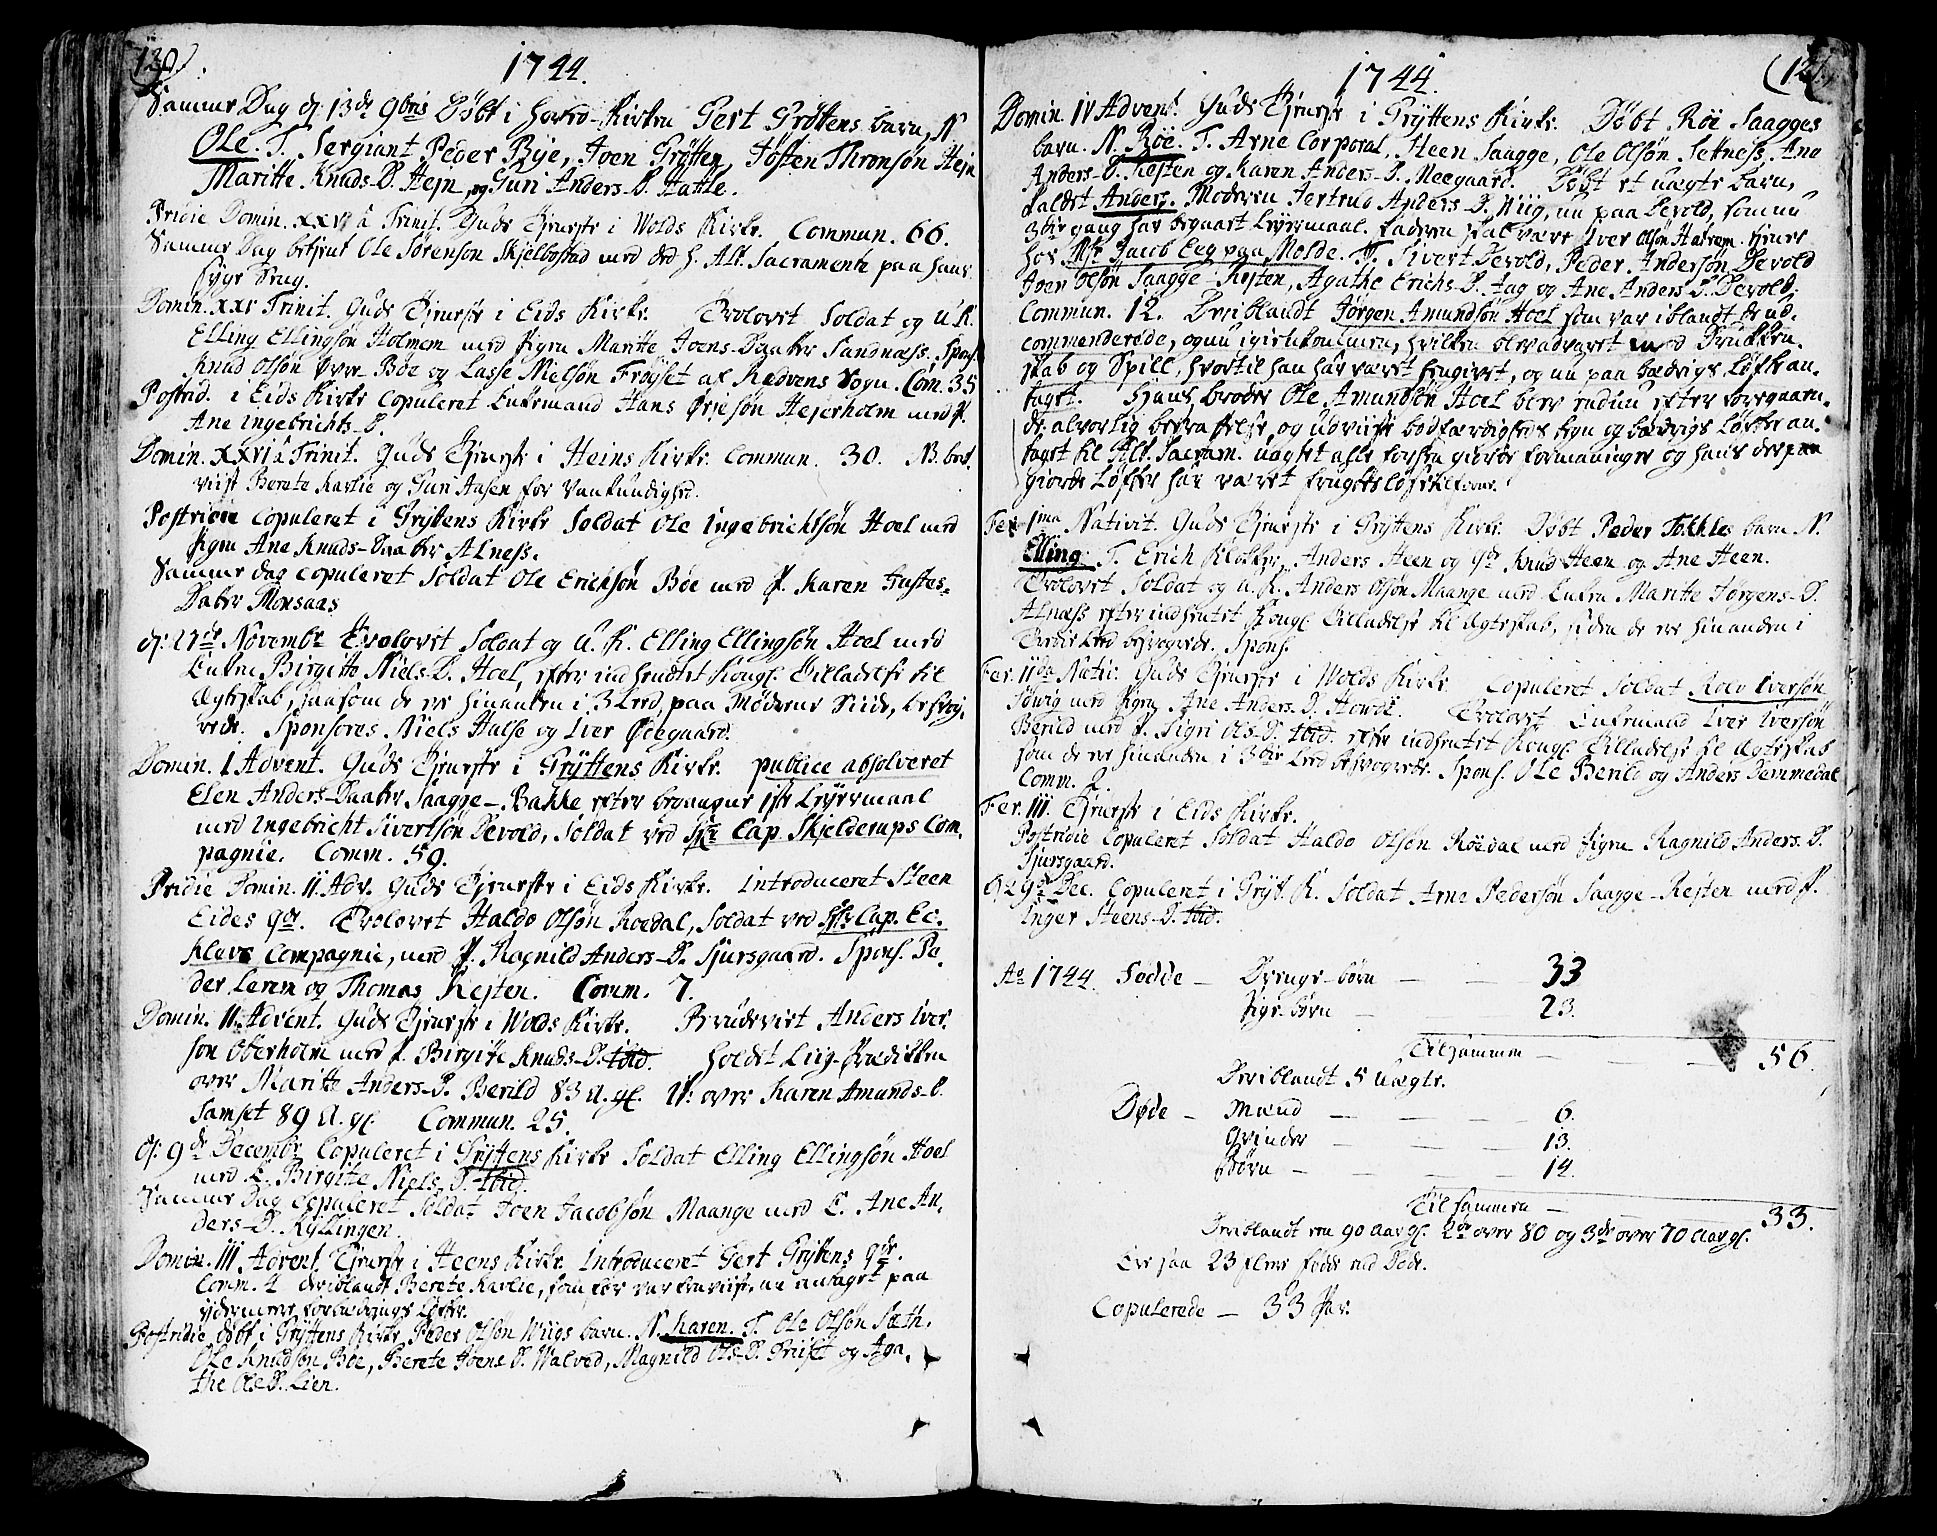 130.
1744.
Samme Dag d. 13de 9bris Døbt i Hoved-Kirken Gert Grøttens barn, N.
Ole. T. Sergiant Peder Bÿe, Joen Grÿtten, Jøsten Thronsøn Hejn
Maritte Knuds-D. Hejn, og Guri Anders-D. Hatle.
Pridie Domin. XXV à Trinit. Guds Tjeneste i Wolds Kirke. Commun. 66.
Samme Dag betjent Ole Sørensøn Skjelbostad med det H. Alt. Sacramente paa hans
Syge Seng.
Domin. XXV Trinit. Guds Tjeneste i Eids Kirke. Trolovet Soldat og U.K.
Elling Ellingsøn Holmem med Pigen Maritte Joens-Daater Sandnæss. Spons.
Knud Olsøn Øvre-Bøe og Lasse Nielsøn Frøÿset af Rødvens Sogn. Com. 35
Postrid. i Eids Kirke Copuleret Enkemand Hans Ørjesøn Hejerholm med P.
Ane Ingebrichts-D.
Domin. XXVI à Trinit. Guds Tjeneste i Heins Kirke. Commun. 30. NB. bort
viist Berete Karlie og Guri Aasen for Vankundighed.
Postridie Copuleret i Grÿttens Kirke Soldat Ole Ingebrichtsøn Hoel med
Pigen Ane Knuds-Daater Alness.
Samme dag Copuleret Soldat Ole Ericksøn Bøe med P. Karen
Daater Monsaas
d. 27de Novembr Trolovet Soldat og U.K. Elling Ellingsøn Hoel med
Enken Birgitte Niels-D. Hoel, efter indhendtet Kongl. Tilladelse til
Ægteskab, saasom de er hinanden i 3 Leed, paa Møderne Siide, besvog-
rede. Sponsores Niels Halse og Iver Ødegaard.
Domin. I Advent. Guds Tjeneste i Grÿttens Kirke. publice absolveret
Elen Anders-Daater Saagge-Bakke efter begangne 1ste Leÿermaal
med Ingebricht Sivertsøn Devold, Soldat ved Hr. Cap. Skjelderups Com-
pagnie. Comm. 59.
Pridie Domin. II. Adv. Guds Tjeneste i Eids Kirke. Introduceret Steen
Eides qde. Trolovet Haldo Olsøn Roedal, Soldat ved Hr. Cap. Ec-
klevs Compagnie, med P. Ragnild Anders-D. Sjursgaard. Spons. Pe-
der Lerem og Thomas Kejten. Comm. 7.
Domin. II. Advent. Guds Tjeneste i Wolds Kirke. Brudeviet Anders Iver-
søn Oterholm med P. Birgitte Knuds-D. ibid. Holdet Liig-Prædiken
over Maritte Anders-D. Berild 83 A. gl. It: over Karen Amunds-D.
Samset 89 A. gl. Commun. 25.
d. 9de Decembr Copuleret i Grÿttens Kirke Soldat Elling Ellingsøn Hoel
med E. Birgitte Niels-D. ibid.
Samme Dag Copuleret Soldat Joen Jacobsøn Maange med E. Ane An-
ders-D. Kÿllingen.
Domin. III Advent. Tjeneste i Heens Kirke. Introduceret Gert Grÿttens qde.
Comm. 4 deriblandt Berete Karlie, som før var bortviist, nu antaget paa
ÿdermere forbedrings Løfte.
Postridie døbt i Grÿttens Kirke Peder Olsøn Wiigs barn. N. Karen. T. Ole Olsøn Sæth.
Ole Knudsøn Bøe, Berete Joens D. Walved, Magnild Ols-D. og Aga-
the Ols D. Lien.
1744.
(131.
Domin. IV Advent. Guds Tjeneste i Grÿttens Kirke. Døbt Røe Saagges
barn. N. Røe. T. Arne Corporal, Steen Saagge, Ole Olsøn Setness, Ane
Anders-D. Kejsten og Karen Anders-D. Meegaard. Døbt et uægte barn,
kaldet Anders. Moderen Jertrud Anders-D. Wiig, nu paa Devold, som nu
3die gang har begaaet Leÿermaal. Faderen skal være Iver Olsøn Hatrem, tjener
hos Mr. Jacob Eeg paa Molde. T. Sivert Devold, Peder Andersøn Devold
Joen Olsøn Saagge-Kejsten, Agathe Erichs-D. Aag og Ane Anders-D. Devold.
Commun. 12. Deriblandt Jørgen Amundsøn Hoel som var iblandt de ud-
commenderede, og nu igienkommen, hvilken blev advaret mod Drukken-
skab og Spill, hvortil han har været hengivet, og nu paa bedrings Løfte an-
taget. Hans broder Ole Amundsøn Hoel blev endnu efter foregaaen-
de alvorlig bestraffelse, og udviiste bodfærdigheds tegn og bedrings Løfter an-
taget til Alt. Sacram. uagtet alle forhen giorde formaninger og hans derpaa
giorde Løfter har været frugtesløse tilforne.
Fer. 1ma Nativit. Guds Tjeneste i Grÿttens Kirke. Døbt Peder Tokles barn N.
Elling. T. Erich Klokker, Anders Heen og qde Knud Heen og Ane Heen.
Trolovet Soldat og U.K. Anders Olsøn Maange med Enken Maritte Jørgens-D.
Alnæss efter indhentet Kongl. Tilladelse til Ægteskab, siden de er hinanden i
Tredie Leed besvogrede. Spons.
Fer. IIda Nativ: Guds Tjeneste i Wolds Kirke. Copuleret Soldat Rolv Iversøn
Søvig med Pigen Ane Anders-D. Trolovet Enkemand Iver Iversøn
Berild med P. Sigri Ols-D. ibid. efter indhentet Kongl. Tilladelse til Ægteskab
som de er hinanden i 3die Leed besvogrede. Spons. Ole Berild og Anders Demmedal
Comm. 2.
Fer. III. Tjeneste i Eids Kirke.
Postridie Copuleret Soldat Haldo Olsøn Röedal med Pigen Ragnild Anders-D.
Sjursgaard.
d. 29de Dec. Copuleret i Grÿt. K. Soldat Arne Pedersøn Saagge-Kejsten med P.
Inger Steens-D. ibid.
Ao 1744. Fødde — Drenge-børn — — 33
Pige-børn — 23.
Tilsammen — — 56.
Deriblandt 5 uægte.
Døde — Mænd — — — 6.
Qvinder — — — 13.
Børn — — — 14.
Tilsammen — — 33.
Deriblandt en 90 Aar gl. 2de over 80 og 3de over 70 Aar gl.
Ere saa 23 flere fødde end Døde.
Copulerede — 33 Par.